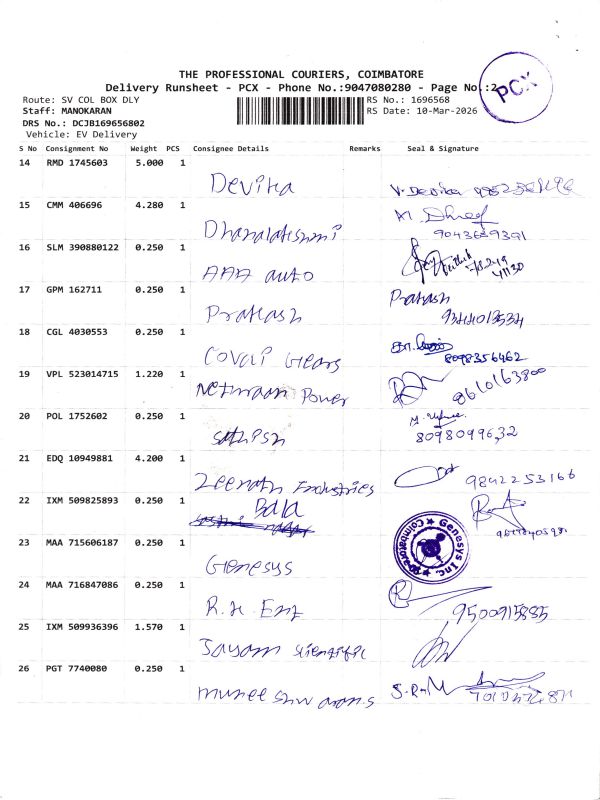 THE PROFESSIONAL COURIERS, COIMBATORE
Delivery Runsheet - PCX - Phone No.:9047080280 - Page No.:2
PCX
Route: SV COL BOX DLY
RS No.: 1696568
Staff: MANOKARAN
RS Date: 10-Mar-2026
DRS No.: DCJB169656802
Vehicle: EV Delivery
S No Consignment No Weight PCS Consignee Details Remarks Seal & Signature
14 RMD 1745603 5.000 1
Devika
15 CMM 406696 4.280 1
Dhanalakshmi
9043689391
16 SLM 390880122 0.250 1
AAA auto
17 GPM 162711 0.250 1
Prakash
Prakash
18 CGL 4030553 0.250 1
Covai Gears
8098356462
19 VPL 523014715 1.220 1
Power
8610163800
20 POL 1752602 0.250 1
Sathish
8098099632
21 EDQ 10949881 4.200 1
Zeenath Industries
9842253166
22 IXM 509825893 0.250 1
Bala
23 MAA 715606187 0.250 1
Genesys
Genesys Inc. Coimbatore
24 MAA 716847086 0.250 1
R.H. Ent
9500915885
25 IXM 509936396 1.570 1
Jayam Scientific
26 PGT 7740080 0.250 1
Muneeshwaran.S